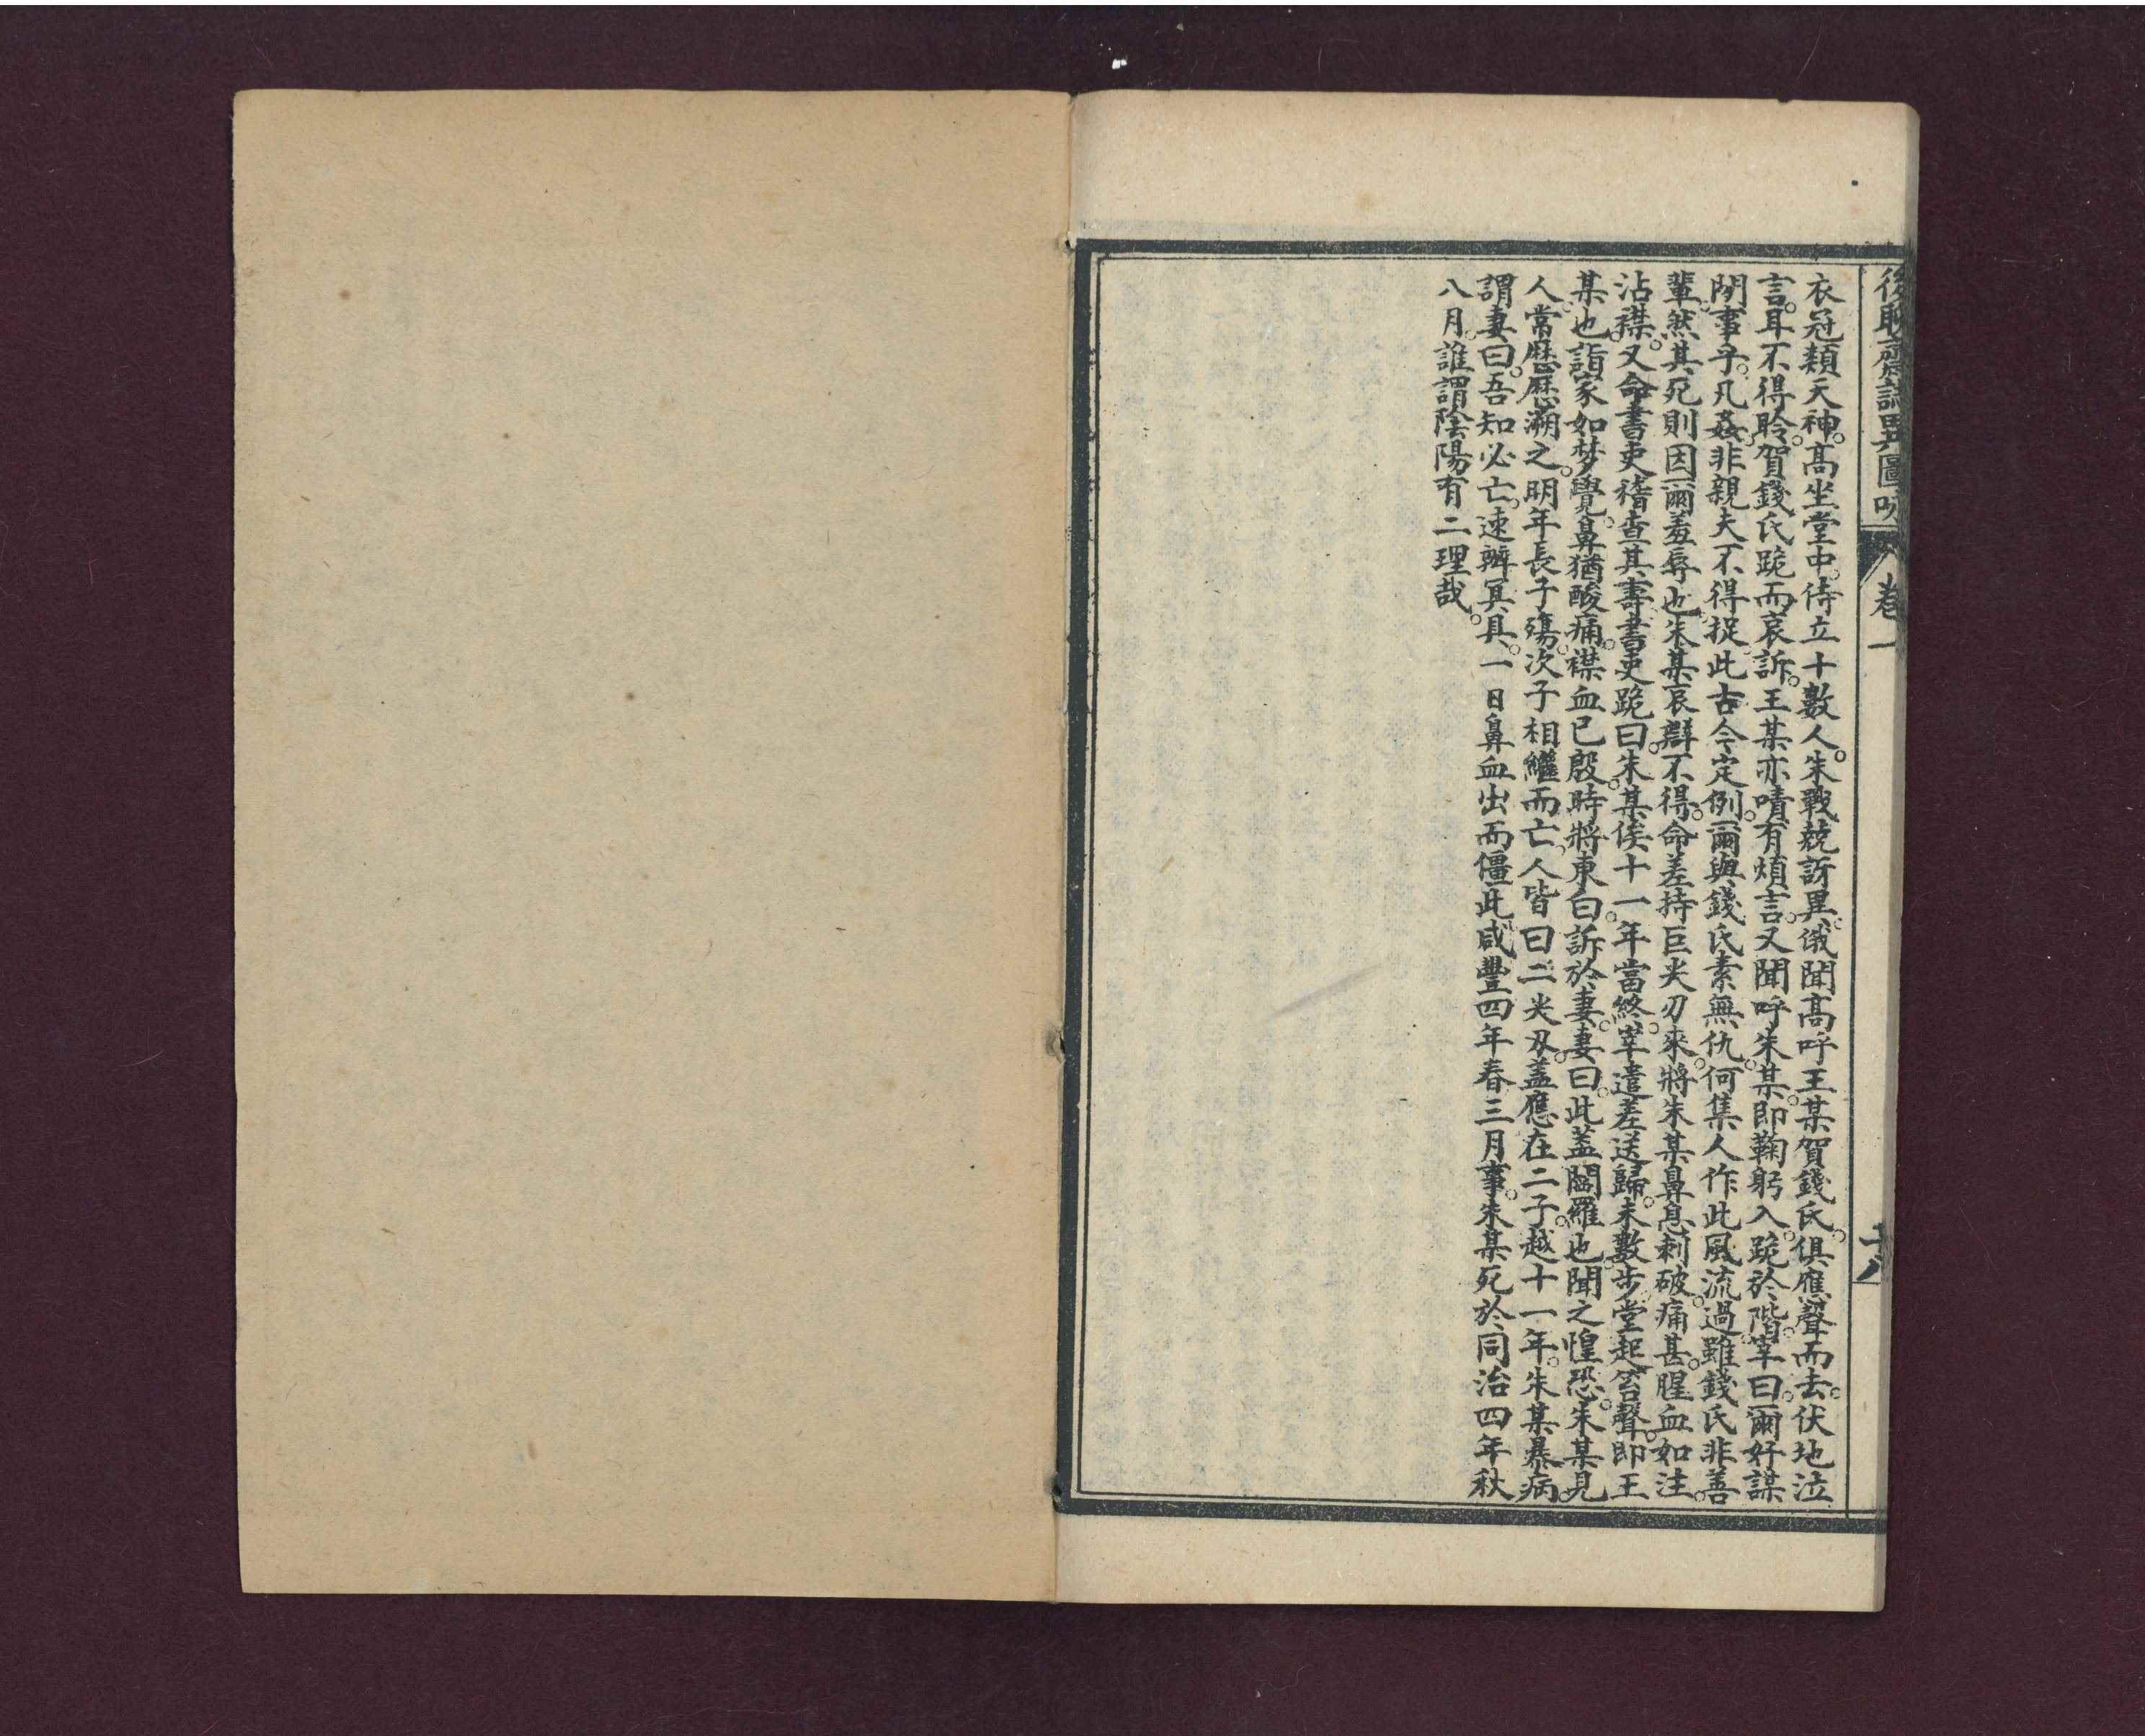 後聊齋誌異圖咏
卷一
十八
衣冠類天神。高坐堂中。侍立十數人。朱戰兢訝異。俄聞高呼王某賀錢氏。俱應聲而去。伏地泣
言。耳不得聆。賀錢氏跪而哀訴。王某亦嘖有煩言。又聞呼朱某。即鞠躬入。跪於階。宰曰。爾好謀
閒事乎。凡姦非親夫不得捉。此古今定例。爾與錢氏素無仇。何集人作此風流過。雖錢氏非善
輩。然其死則因爾羞辱也。朱某哀辯不得。命差持巨尖刃來。將朱某鼻息刺破。痛甚。腥血如注。
沾襟。又命書吏稽查其壽。書吏跪曰。朱某俟十一年當終。宰遣差送歸。未數步。堂起笞聲。即王
某也。詣家如梦覺。鼻猶酸痛。襟血已殷。時將東白。訴於妻。妻曰。此蓋閻羅也。聞之惶恐。朱某見
人。嘗歷歷溯之。明年長子殤。次子相繼而亡。人皆曰二尖刃。蓋應在二子。越十一年。朱某暴病。
謂妻曰。吾知必亡。速辦冥具。一日鼻血出而僵。此咸豐四年春三月事。朱某死於同治四年秋
八月。誰謂陰陽有二理哉。